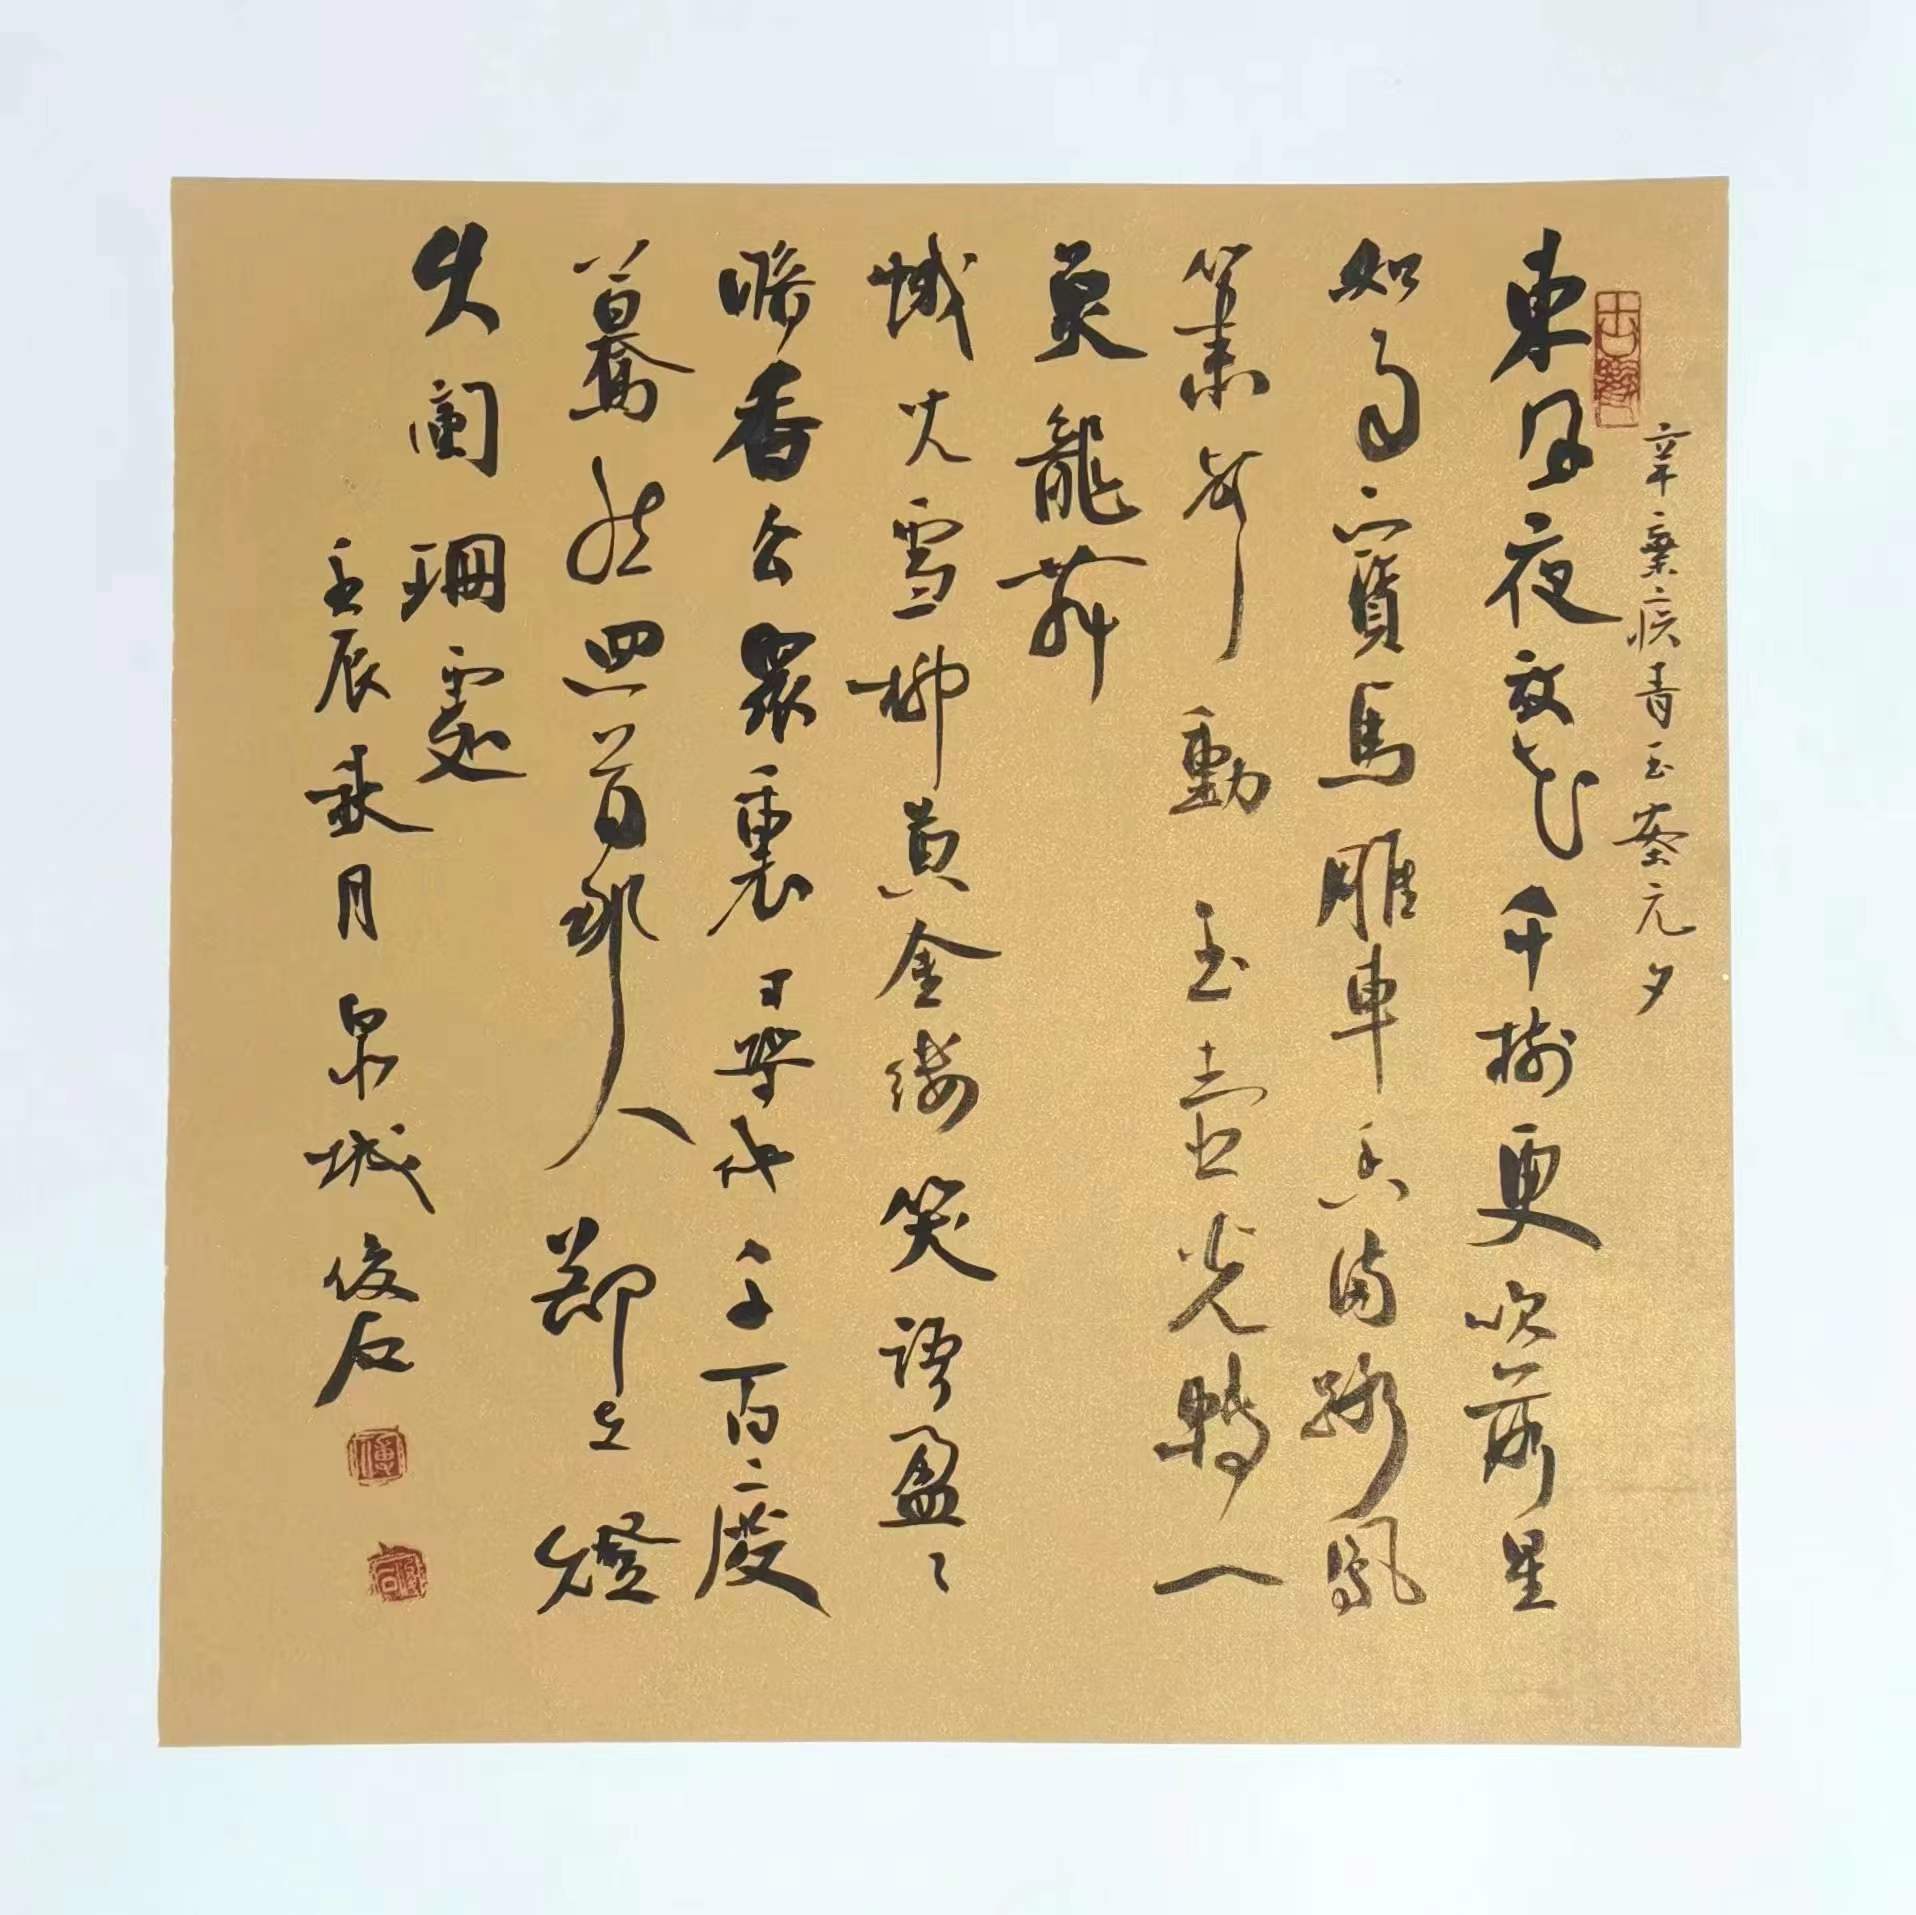 辛棄疾青玉案元夕
東風夜放花千樹更吹落星
如雨寶馬雕車香滿路鳳
簫聲動玉壺光轉一
魚龍舞
蛾兒雪柳黃金縷笑語盈〻
暗香去眾裏尋他千百度
驀然回首那人卻在燈
火闌珊處
壬辰秋月泉城俊石